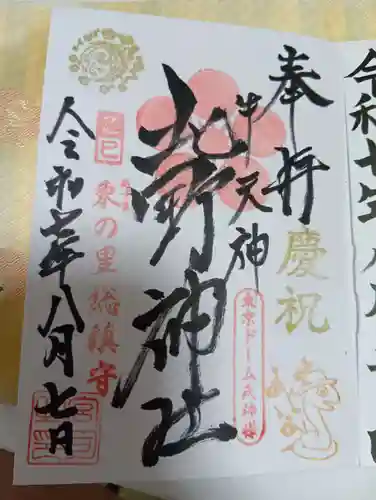 奉拝
慶祝
牛天神
北野神社
東京ドーム氏神様
乙巳
東の里総鎮守
令和七年八月七日
令和七年八月